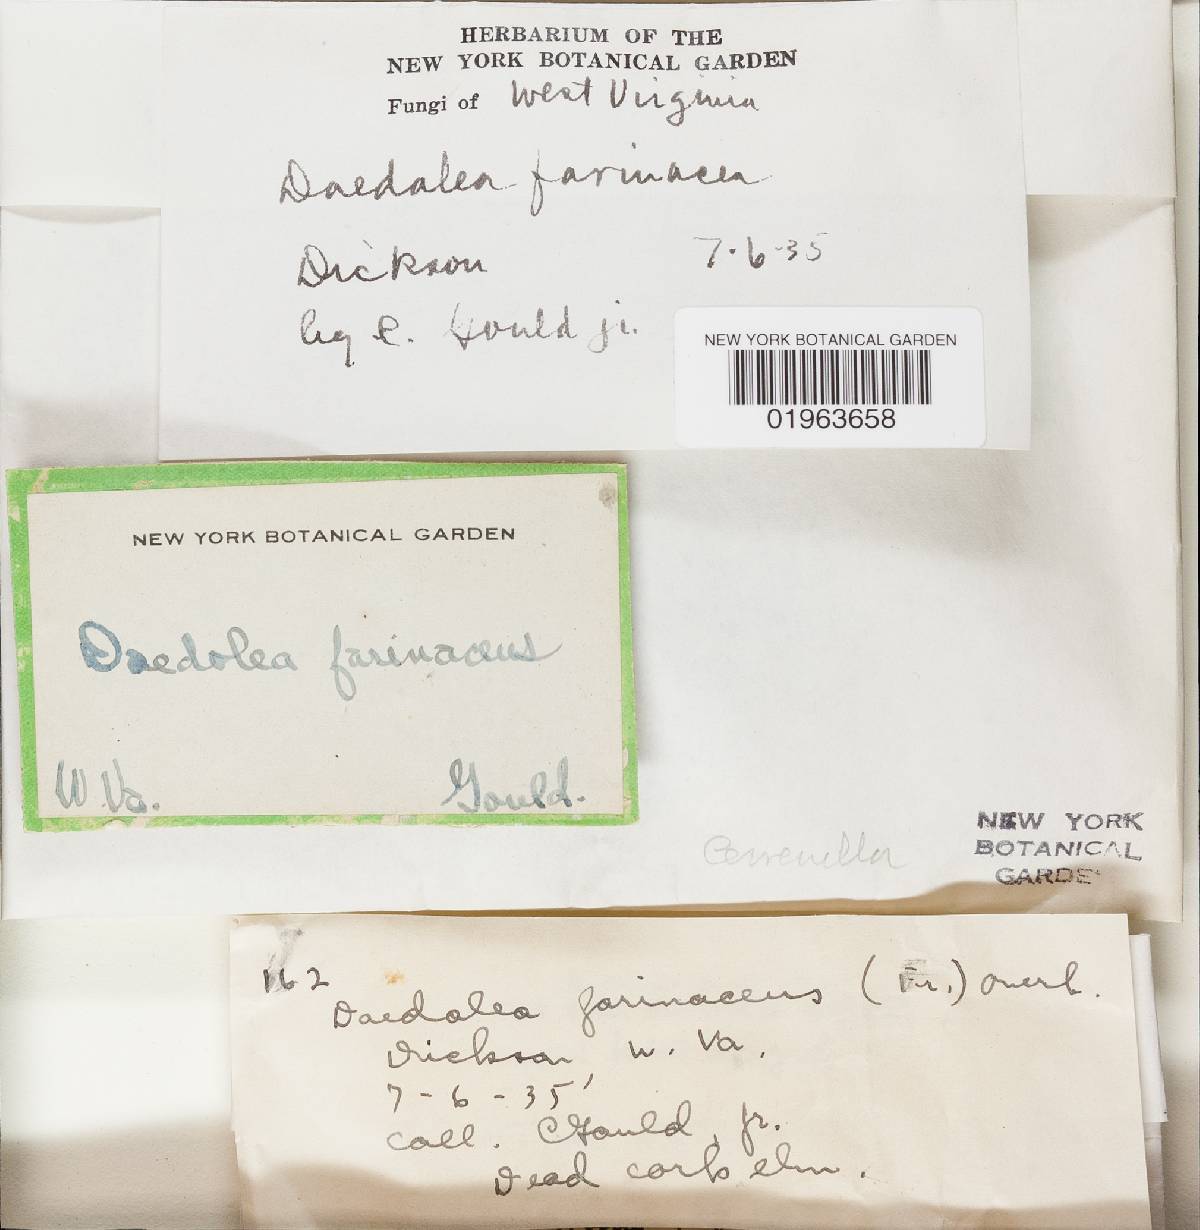 HERBARIUM OF THE
NEW YORK BOTANICAL GARDEN
Fungi of West Virginia
Daedalea farinacea
Dickson 7-6-35
leg C. Gould jr.
NEW YORK BOTANICAL GARDEN
01963658
NEW YORK BOTANICAL GARDEN
Daedalea farinaceus
W. Va. Gould.
NEW YORK
BOTANICAL
GARDE
162
Daedalea farinaceus (Fr.) Overh.
Dickson W. Va.
7-6-35
Coll. CGould, jr.
Dead cork elm.